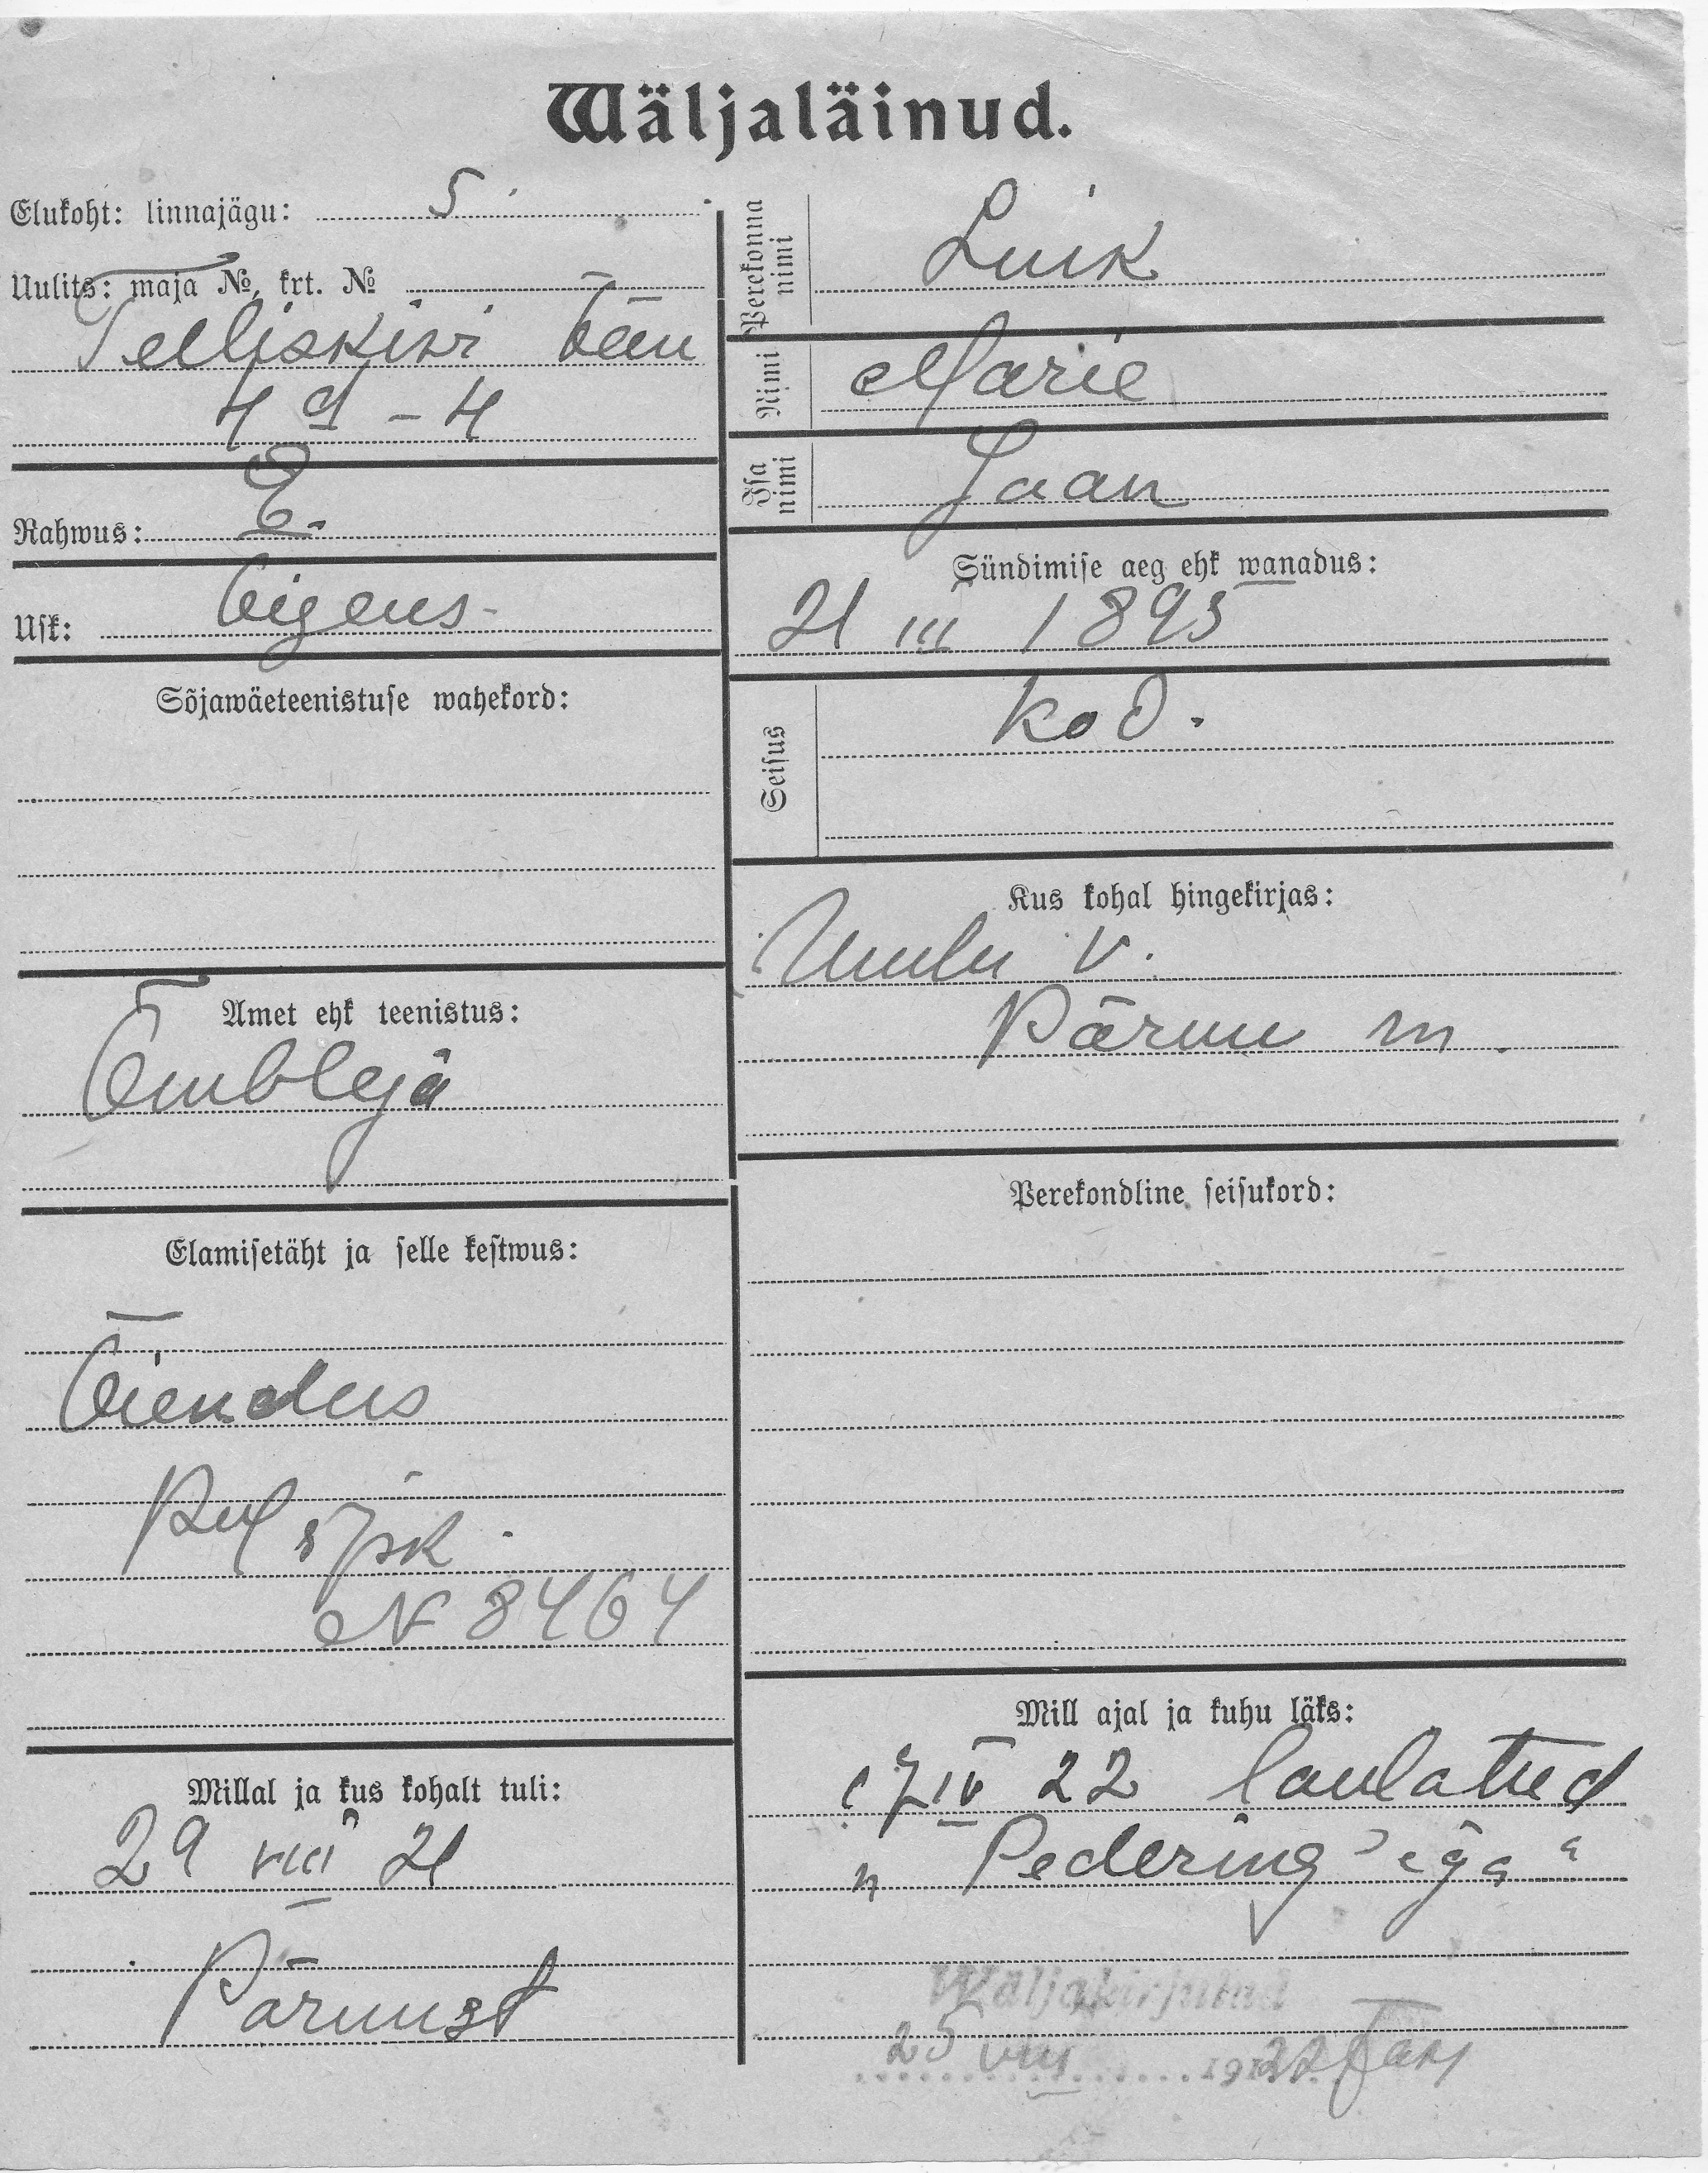 Wäljaläinud.
Elukoht: linnajägu: 5
Uulits: maja №, krt. №
Telliskiwi tän
4 d - 4
Rahwus: E.
Usk: õigeus-
Sõjawäeteenistuse wahekord:
Amet ehk teenistus:
Õmbleja
Elamisetäht ja selle kestwus:
Tõiendus
jsk.
N 8464
Millal ja kus kohalt tuli:
29 VIII 21
Pärnust
Perekonna nimi Luik
Nimi Marie
Isa nimi Jaan
Sündimise aeg ehk wanadus:
21 III 1895
Seisus kod.
Kus kohal hingekirjas:
v.
Pärnu m.
Perekondline seisukord:
Mill ajal ja kuhu läks:
17 IV 22 laulatud
„Pedering'iga“
Wäljakirjutud
25 VIII 1922